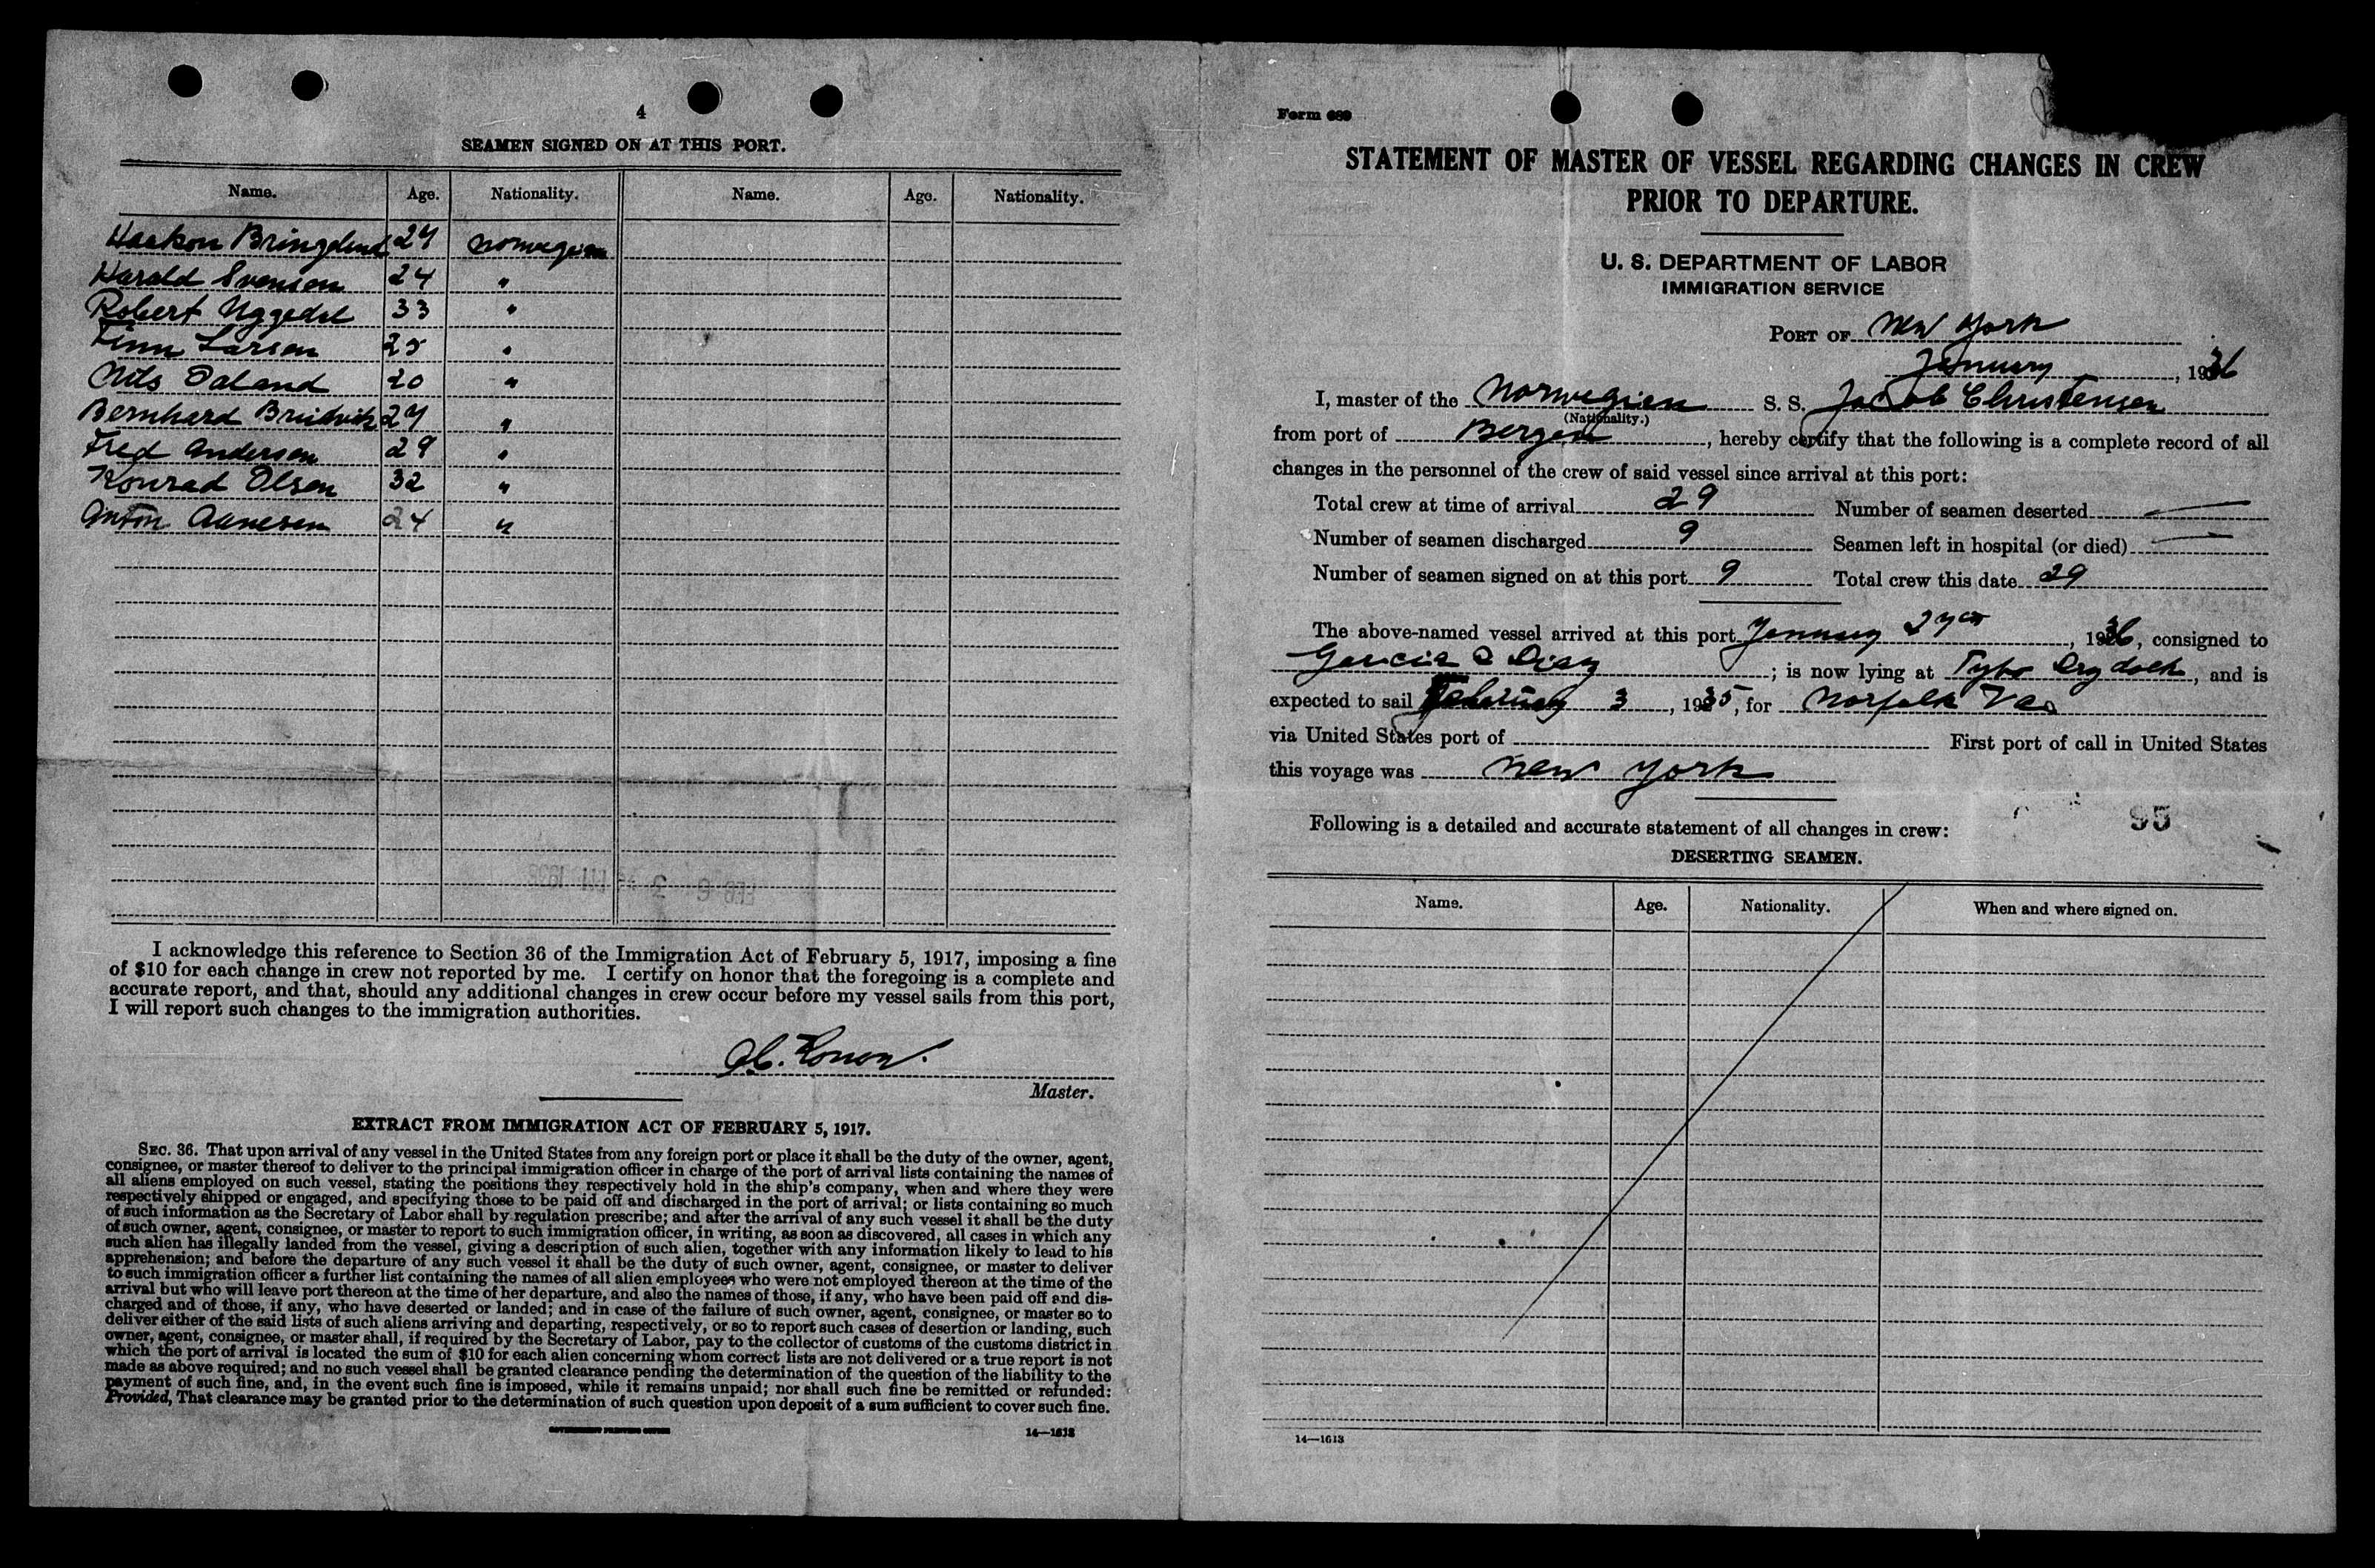 4
SEAMEN SIGNED ON AT THIS PORT.
Name. Age. Nationality. Name. Age. Nationality.
Haakon 27 Norwegian
Harald Svensen 24 "
Robert 33 "
Finn Larsen 25 "
Nils 20 "
Bernhard 27 "
Fred Andersen 29 "
Konrad Olsen 32 "
Anton 24 "
I acknowledge this reference to Section 36 of the Immigration Act of February 5, 1917, imposing a fine
of $10 for each change in crew not reported by me. I certify on honor that the foregoing is a complete and
accurate report, and that, should any additional changes in crew occur before my vessel sails from this port,
I will report such changes to the immigration authorities.
Master.
EXTRACT FROM IMMIGRATION ACT OF FEBRUARY 5, 1917.
SEC. 36. That upon arrival of any vessel in the United States from any foreign port or place it shall be the duty of the owner, agent,
consignee, or master thereof to deliver to the principal immigration officer in charge of the port of arrival lists containing the names of
all aliens employed on such vessel, stating the positions they respectively hold in the ship's company, when and where they were
respectively shipped or engaged, and specifying those to be paid off and discharged in the port of arrival; or lists containing so much
of such information as the Secretary of Labor shall by regulation prescribe; and after the arrival of any such vessel it shall be the duty
of such owner, agent, consignee, or master to report to such immigration officer, in writing, as soon as discovered, all cases in which any
such alien has illegally landed from the vessel, giving a description of such alien, together with any information likely to lead to his
apprehension; and before the departure of any such vessel it shall be the duty of such owner, agent, consignee, or master to deliver
to such immigration officer a further list containing the names of all alien employees who were not employed thereon at the time of the
arrival but who will leave port thereon at the time of her departure, and also the names of those, if any, who have been paid off and dis-
charged and of those, if any, who have deserted or landed; and in case of the failure of such owner, agent, consignee, or master so to
deliver either of the said lists of such aliens arriving and departing, respectively, or so to report such cases of desertion or landing, such
owner, agent, consignee, or master shall, if required by the Secretary of Labor, pay to the collector of customs of the customs district in
which the port of arrival is located the sum of $10 for each alien concerning whom correct lists are not delivered or a true report is not
made as above required; and no such vessel shall be granted clearance pending the determination of the question of the liability to the
payment of such fine, and, in the event such fine is imposed, while it remains unpaid; nor shall such fine be remitted or refunded:
Provided, That clearance may be granted prior to the determination of such question upon deposit of a sum sufficient to cover such fine.
GOVERNMENT PRINTING OFFICE 14—1613
Form 689
STATEMENT OF MASTER OF VESSEL REGARDING CHANGES IN CREW
PRIOR TO DEPARTURE.
U. S. DEPARTMENT OF LABOR
IMMIGRATION SERVICE
PORT OF New York
January, 1936
I, master of the Norwegian S. S. Jacob Christensen
(Nationality.)
from port of Bergen, hereby certify that the following is a complete record of all
changes in the personnel of the crew of said vessel since arrival at this port:
Total crew at time of arrival 29 Number of seamen deserted —
Number of seamen discharged 9 Seamen left in hospital (or died) —
Number of seamen signed on at this port 9 Total crew this date 29
The above-named vessel arrived at this port January 27, 1936, consigned to
Garcia & Diaz; is now lying at Drydock, and is
expected to sail February 3, 1935, for Norfolk Va
via United States port of First port of call in United States
this voyage was New York
95
Following is a detailed and accurate statement of all changes in crew:
DESERTING SEAMEN.
Name. Age. Nationality. When and where signed on.
14—1613